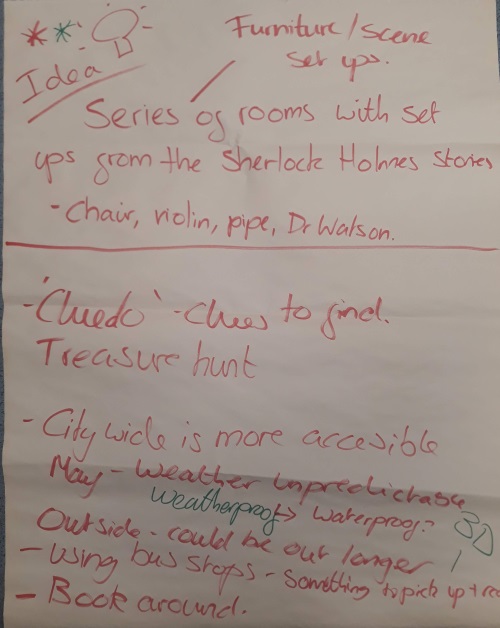 Furniture/scene
set ups.
Idea
Series of rooms with set
ups from the Sherlock Holmes stories
- Chair, violin, pipe, Dr Watson.
- 'Cluedo' - Clues to find.
Treasure hunt
- City wide is more accesible
May - Weather unpredictable
Weatherproof -> Waterproof?
3D
Outside - could be out longer /
- Using bus stops - Something to pick up +
- Book around.